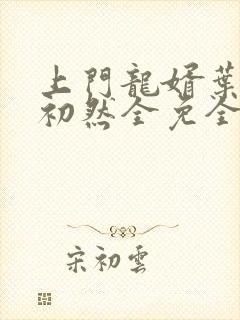 上門龍婿葉
初然全免全
宋初雲